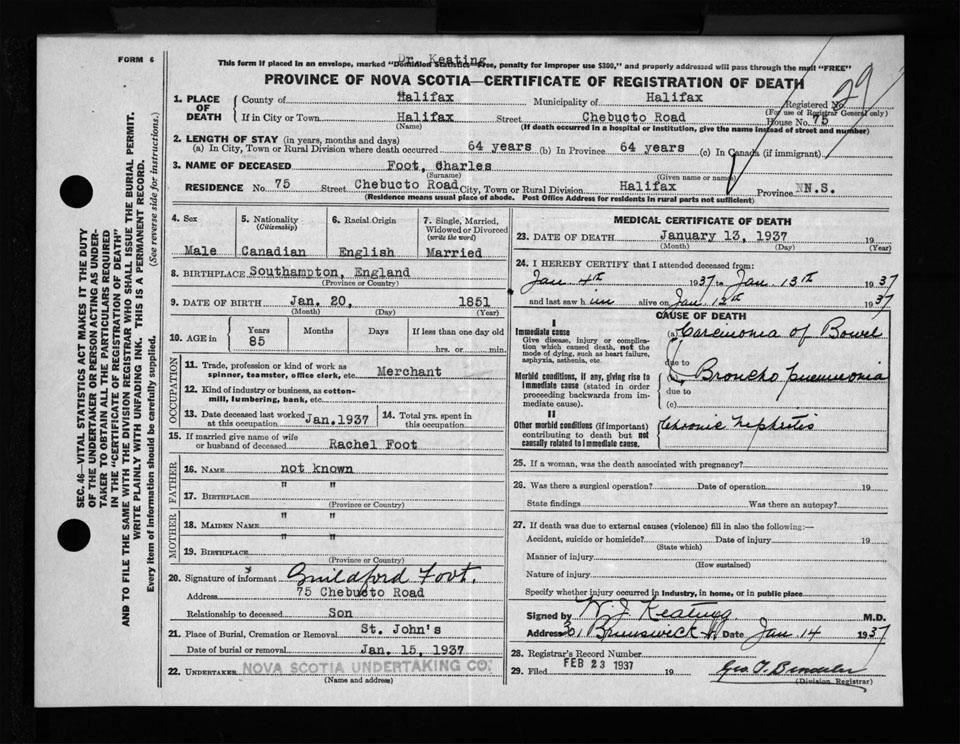 FORM 6
Dr. Keating
This form if placed in an envelope, marked "Dominion Statistics—Free, penalty for improper use $300," and properly addressed will pass through the mail "FREE"
PROVINCE OF NOVA SCOTIA—CERTIFICATE OF REGISTRATION OF DEATH
1. PLACE OF DEATH
County of Halifax Municipality of Halifax Registered No.
(For use of Registrar General only)
If in City or Town Halifax Street Chebucto Road House No. 75
(Name) (If death occurred in a hospital or institution, give the name instead of street and number)
2. LENGTH OF STAY (in years, months and days)
(a) In City, Town or Rural Division where death occurred 64 years (b) In Province 64 years (c) In Canada (if immigrant)
3. NAME OF DECEASED Foot, Charles
(Surname) (Given name or names)
RESIDENCE No. 75 Street Chebucto Road City, Town or Rural Division Halifax Province NN.S.
(Residence means usual place of abode. Post Office Address for residents in rural parts not sufficient)
4. Sex
Male
5. Nationality
(Citizenship)
Canadian
6. Racial Origin
English
7. Single, Married, Widowed or Divorced
(write the word)
Married
8. BIRTHPLACE Southampton, England
(Province or Country)
9. DATE OF BIRTH Jan. 20, 1851
(Month) (Day) (Year)
10. AGE in
Years Months Days If less than one day old
85 hrs. or min.
OCCUPATION
11. Trade, profession or kind of work as spinner, teamster, office clerk, etc. Merchant
12. Kind of industry or business, as cotton-mill, lumbering, bank, etc.
13. Date deceased last worked at this occupation Jan.1937
14. Total yrs. spent in this occupation
15. If married give name of wife or husband of deceased Rachel Foot
FATHER
16. NAME not known
17. BIRTHPLACE " "
(Province or Country)
MOTHER
18. MAIDEN NAME " "
19. BIRTHPLACE " "
(Province or Country)
20. Signature of informant Guildford Foot.
Address 75 Chebucto Road
Relationship to deceased Son
21. Place of Burial, Cremation or Removal St. John's
Date of burial or removal Jan. 15, 1937
22. UNDERTAKER NOVA SCOTIA UNDERTAKING CO.
(Name and address)
MEDICAL CERTIFICATE OF DEATH
23. DATE OF DEATH January 13, 1937 19
(Month) (Day) (Year)
24. I HEREBY CERTIFY that I attended deceased from:
Jan 4th 1937 to Jan 13th 1937
and last saw him alive on Jan 12th 1937
CAUSE OF DEATH
I
Immediate cause
Give disease, injury or complication which caused death, not the mode of dying, such as heart failure, asphyxia, asthenia, etc.
(a) Carcinonia of Bowel
due to
Morbid conditions, if any, giving rise to immediate cause (stated in order proceeding backwards from immediate cause).
Broncho pneumonia
due to
(c)
II
Other morbid conditions (if important) contributing to death but not causally related to immediate cause.
Chronic Nephritis
25. If a woman, was the death associated with pregnancy?
26. Was there a surgical operation? Date of operation 19
State findings Was there an autopsy?
27. If death was due to external causes (violence) fill in also the following:—
Accident, suicide or homicide? Date of injury 19
(State which)
Manner of injury
(How sustained)
Nature of injury
Specify whether injury occurred in industry, in home, or in public place
Signed by W. J. Keating M.D.
Address Brunswick Date Jan 14 1937
28. Registrar's Record Number
29. Filed FEB 23 1937 19
(Division Registrar)
SEC. 46—VITAL STATISTICS ACT MAKES IT THE DUTY
OF THE UNDERTAKER OR PERSON ACTING AS UNDER-
TAKER TO OBTAIN ALL THE PARTICULARS REQUIRED
IN THE "CERTIFICATE OF REGISTRATION OF DEATH"
AND TO FILE THE SAME WITH THE DIVISION REGISTRAR WHO SHALL ISSUE THE BURIAL PERMIT.
WRITE PLAINLY WITH UNFADING INK. THIS IS A PERMANENT RECORD.
Every item of information should be carefully supplied. (See reverse side for instructions.)